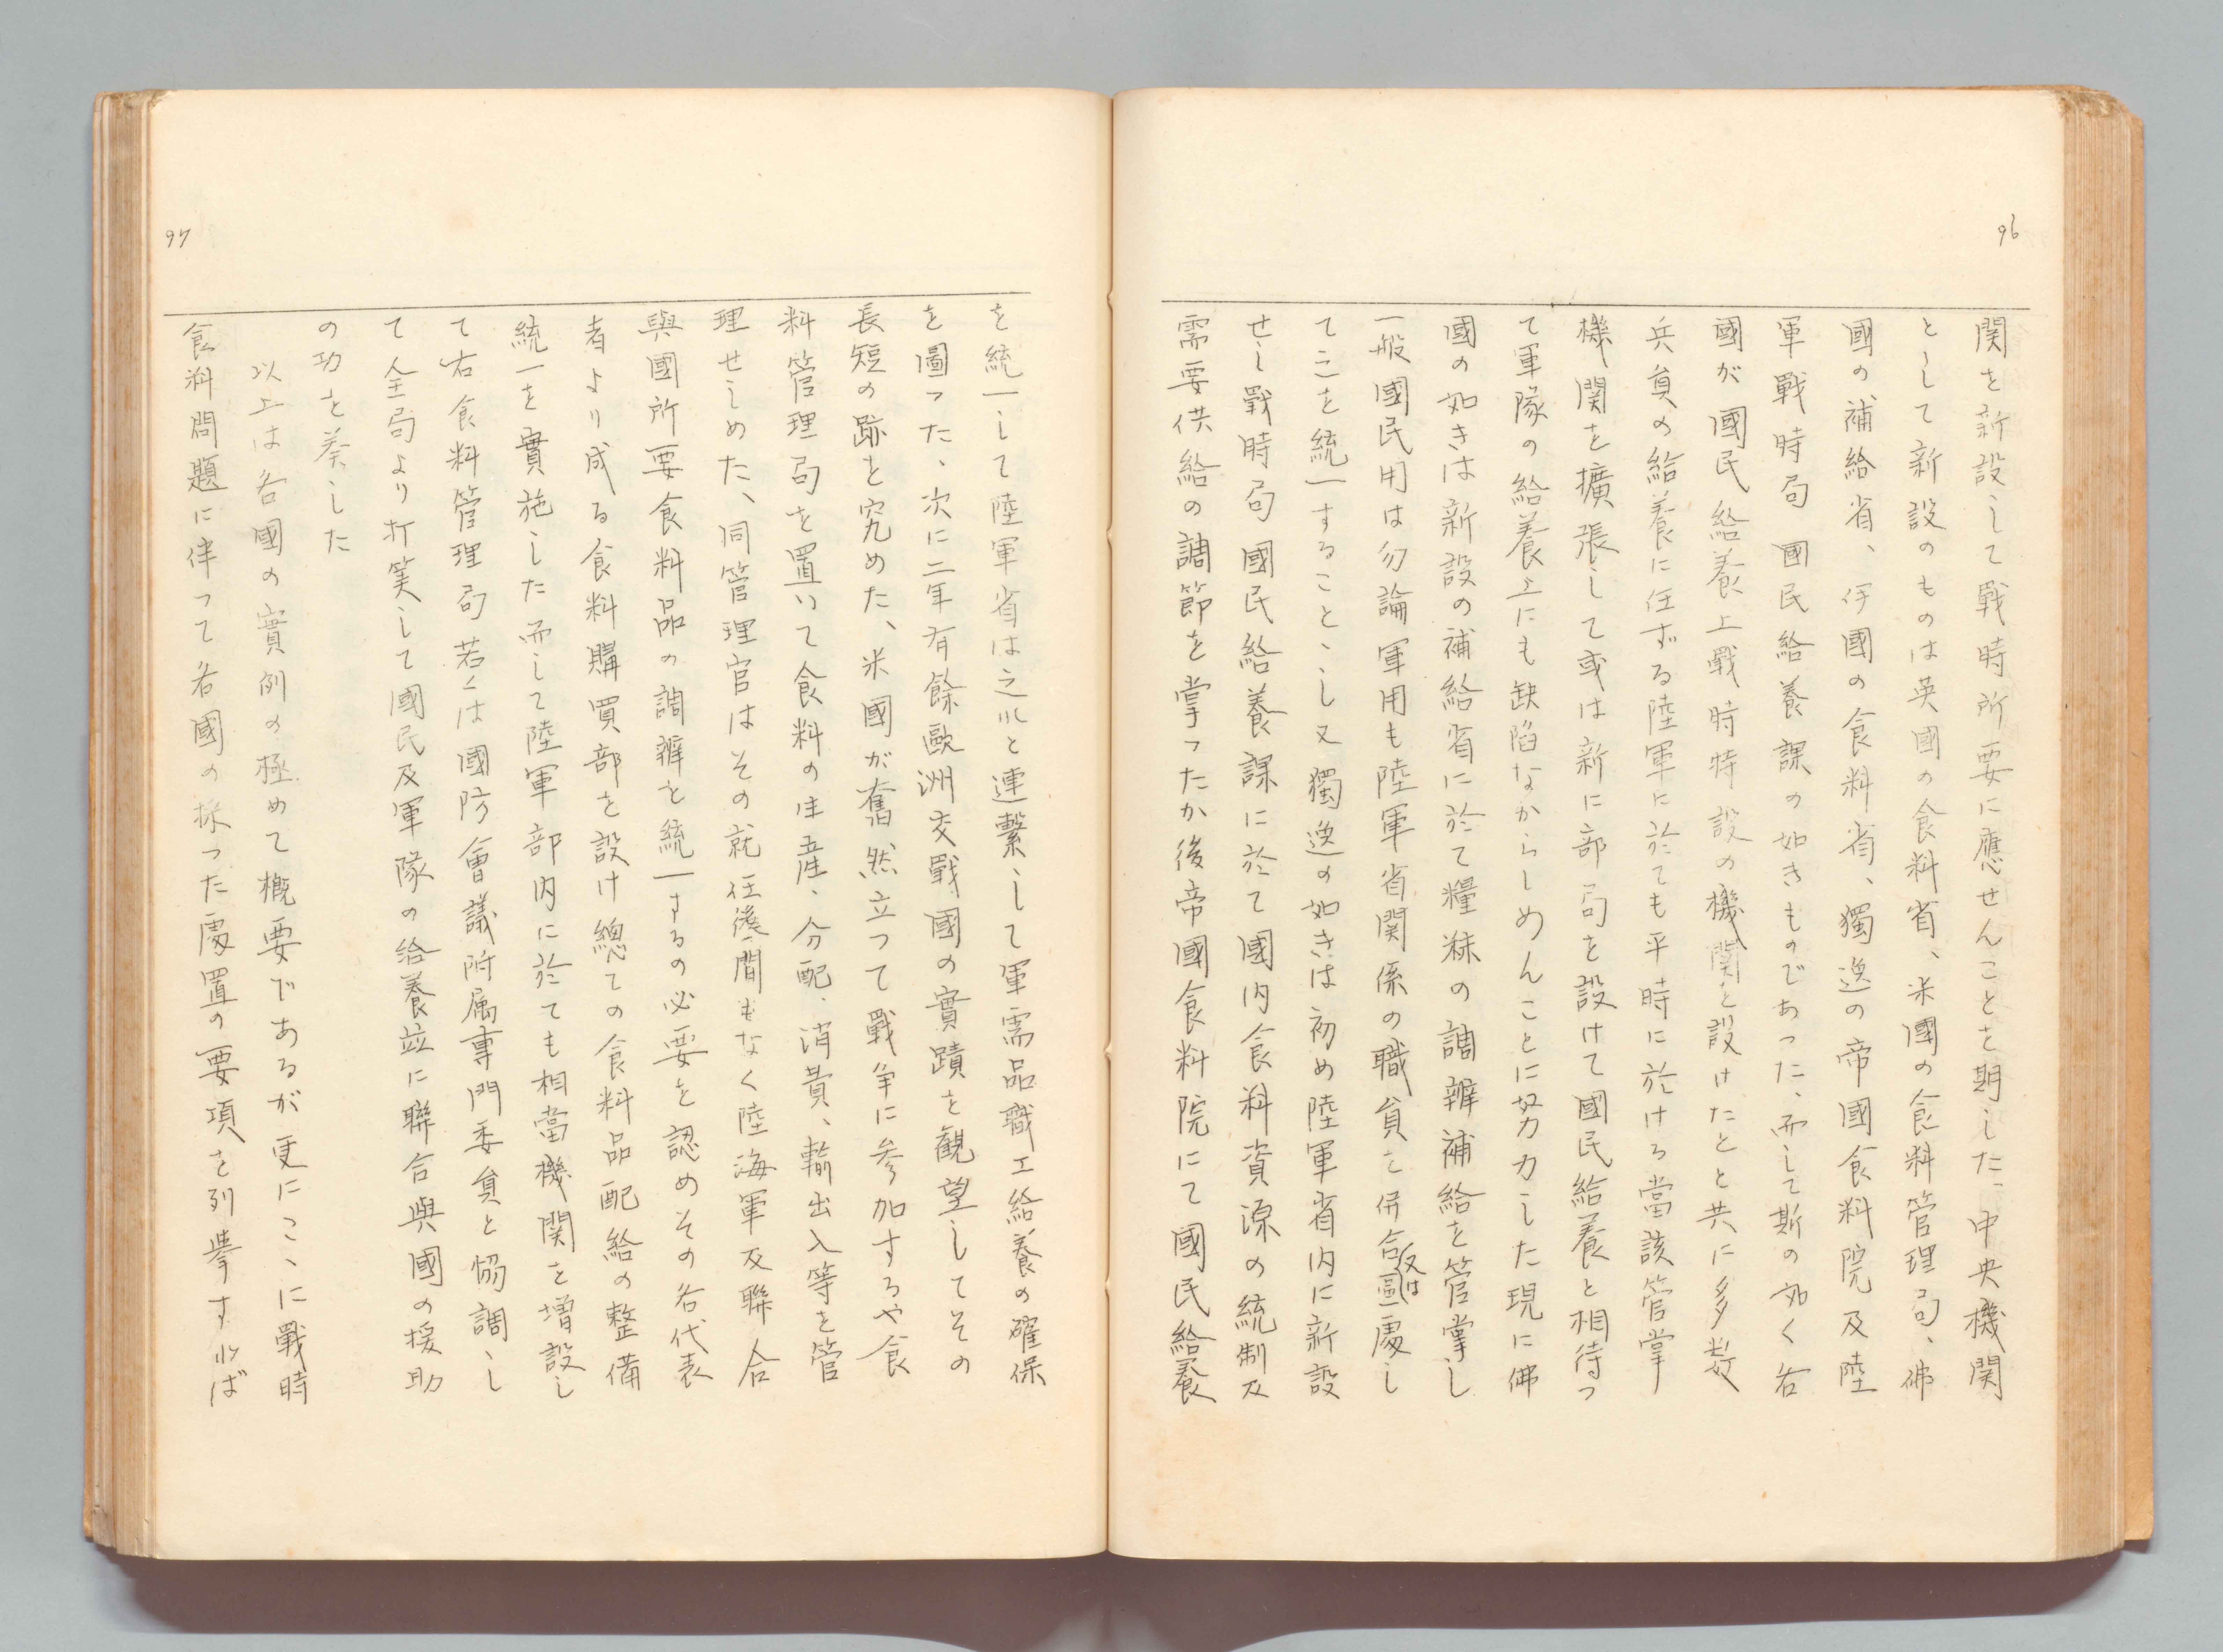 96
関を新設して戰時所要に應せんことを期した、中央機関
として新設のものは英國の食料省、米國の食料管理局、佛
國の補給省、伊國の食料省、獨逸の帝國食料院及陸
軍戰時局國民給養課の如きものであった、而して斯の如く各
國が國民給養上戰時特設の機関を設けたると共に多数
兵員の給養に任ずる陸軍に於ても平時に於ける當該管掌
機関を擴張して或は新に部局を設けて國民給養と相待つ
て軍隊の給養上にも缺陷なからしめんことに努力した現に佛
國の如きは新設の補給省に於て糧秣の調辨補給を管掌し
一般國民用は勿論軍用も陸軍省関係の職員を併合又は區處し
て之を統一することゝし又獨逸の如きは初め陸軍省内に新設
せし戰時局國民給養課に於て國内食料資源の統制及
需要供給の調節を掌つたか後帝國食料院にて國民給養
97
を統一して陸軍省は之れと連繋して軍需品職工給養の確保
を圖つた、次に二年有餘歐洲交戰國の實蹟を観望してその
長短の跡を究めた、米國が奮然立つて戰争に参加するや食
料管理局を置いて食料の生産、分配、消費、輸出入等を管
理せしめた、同管理官はその就任後間もなく陸海軍及聯合
與國所要食料品の調辨を統一するの必要を認めその各代表
者より成る食料購買部を設け總ての食料品配給の整備
統一を實施した而して陸軍部内に於ても相當機関を増設し
て右食料管理局若くは國防會議附属専門委員と協調し
て全局より打算して國民及軍隊の給養並に聯合與國の援助
の功を奏した
以上は各國の實例の極めて概要であるが更にこゝに戰時
食料問題に伴つて各國の採つた處置の要項を列擧すれば